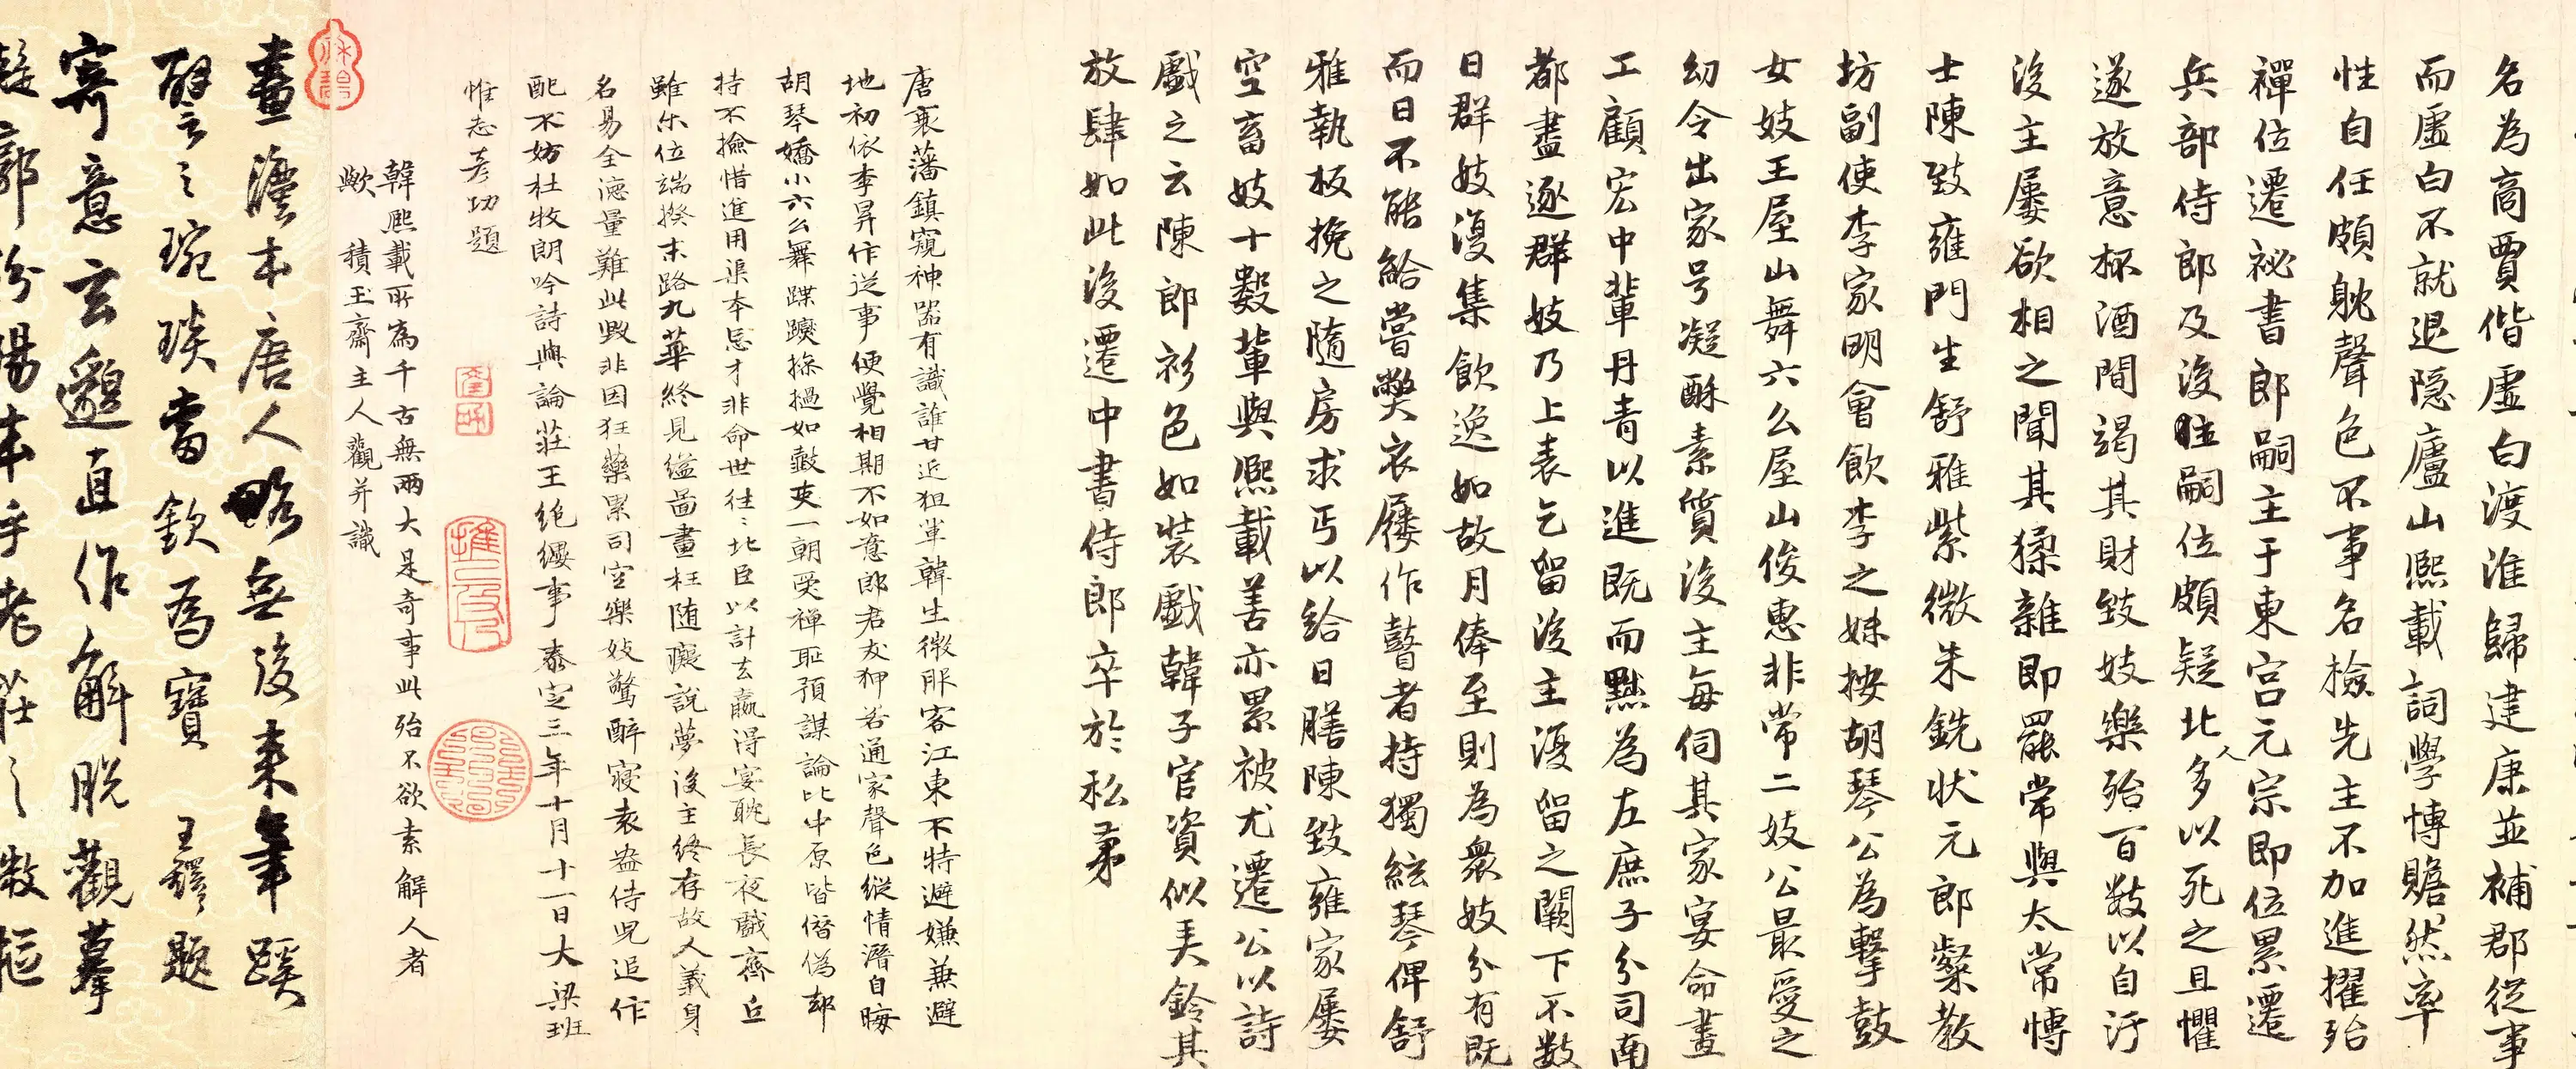 名為高賈偕虛白渡淮歸建康並補郡從事
而虛白不就退隐廬山熈載詞學博贍然率
性自任頗躭聲色不事名檢先主不加進擢殆
禪位遷祕書郎嗣主于東宮元宗即位累遷
兵部侍郎及後主嗣位頗疑北人多以死之且懼
遂放意杯酒間竭其財致妓樂殆百數以自汙
後主屢欲相之聞其猱雜即罷常與太常博
士陳致雍門生舒雅紫微朱銑状元郎粲教
坊副使李家明會飲李之妹按胡琴公為擊鼓
女妓王屋山舞六么屋山俊惠非常二妓公最愛之
幼令出家号凝酥素質後主每伺其家宴命畫
工顧宏中輩丹青以進既而黜為左庶子分司南
都盡逐群妓乃上表乞留後主復留之闕下不數
日群妓復集飲逸如故月俸至則為衆妓分有既
而日不能給嘗弊衣屨作瞽者持獨絃琴俾舒
雅執板挽之隨房求丐以給日膳陳致雍家屢
空畜妓十數輩與熈載善亦累被尤遷公以詩
戲之云陳郎衫色如裝戲韓子官資似美鈴其
放肆如此後遷中書侍郎卒於私第
唐衰藩鎮窺神器有識誰甘近狙軍韓生微服客江東不特避嫌兼避
地初依李昇作逆事便覺相期不如意郎君友狎若通家聲色縱情潛自晦
胡琴嬌小六么舞蹀躞摻撾如鼓吏一朝受禪恥預謀論比中原皆僭偽却
持不撿惜進用渠本忌才非命世往々北臣以計去贏得宴眈長夜戲齊丘
雖尔位端揆末路九華終見縊圖畫枉随癡說夢後主終存故人義身
名易全德量難此毀非因狂藥累司空樂妓驚醉寢袁盎侍兒追作
配不妨杜牧朗吟詩與論莊王絶纓事泰定三年十月十一日大梁班
惟志彥功題
韓熈載所為千古無兩大是奇事此殆不欲索解人者
歟 積玉齋主人觀并識
畫漢本唐人略無後来筆蹊
譬之琬琰當欽為寶 王鐸題
寄意玄邈直作解脱觀摹
擬郭汾陽本乎老莊之教